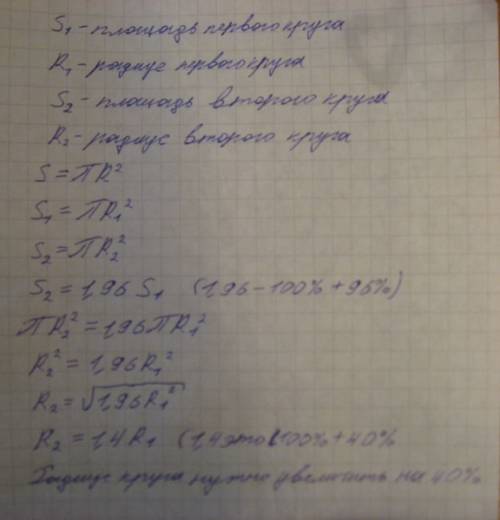 S₁ - площадь первого круга
R₁ - радиус первого круга
S₂ - площадь второго круга
R₂ - радиус второго круга
S = πR²
S₁ = πR₁²
S₂ = πR₂²
S₂ = 1,96 S₁ (1,96 - 100% + 96%)
πR₂² = 1,96πR₁²
R₂² = 1,96R₁²
R₂ = √1,96R₁²
R₂ = 1,4R₁ (1,4 это (100% + 40%
Радиус круга нужно увеличить на 40%